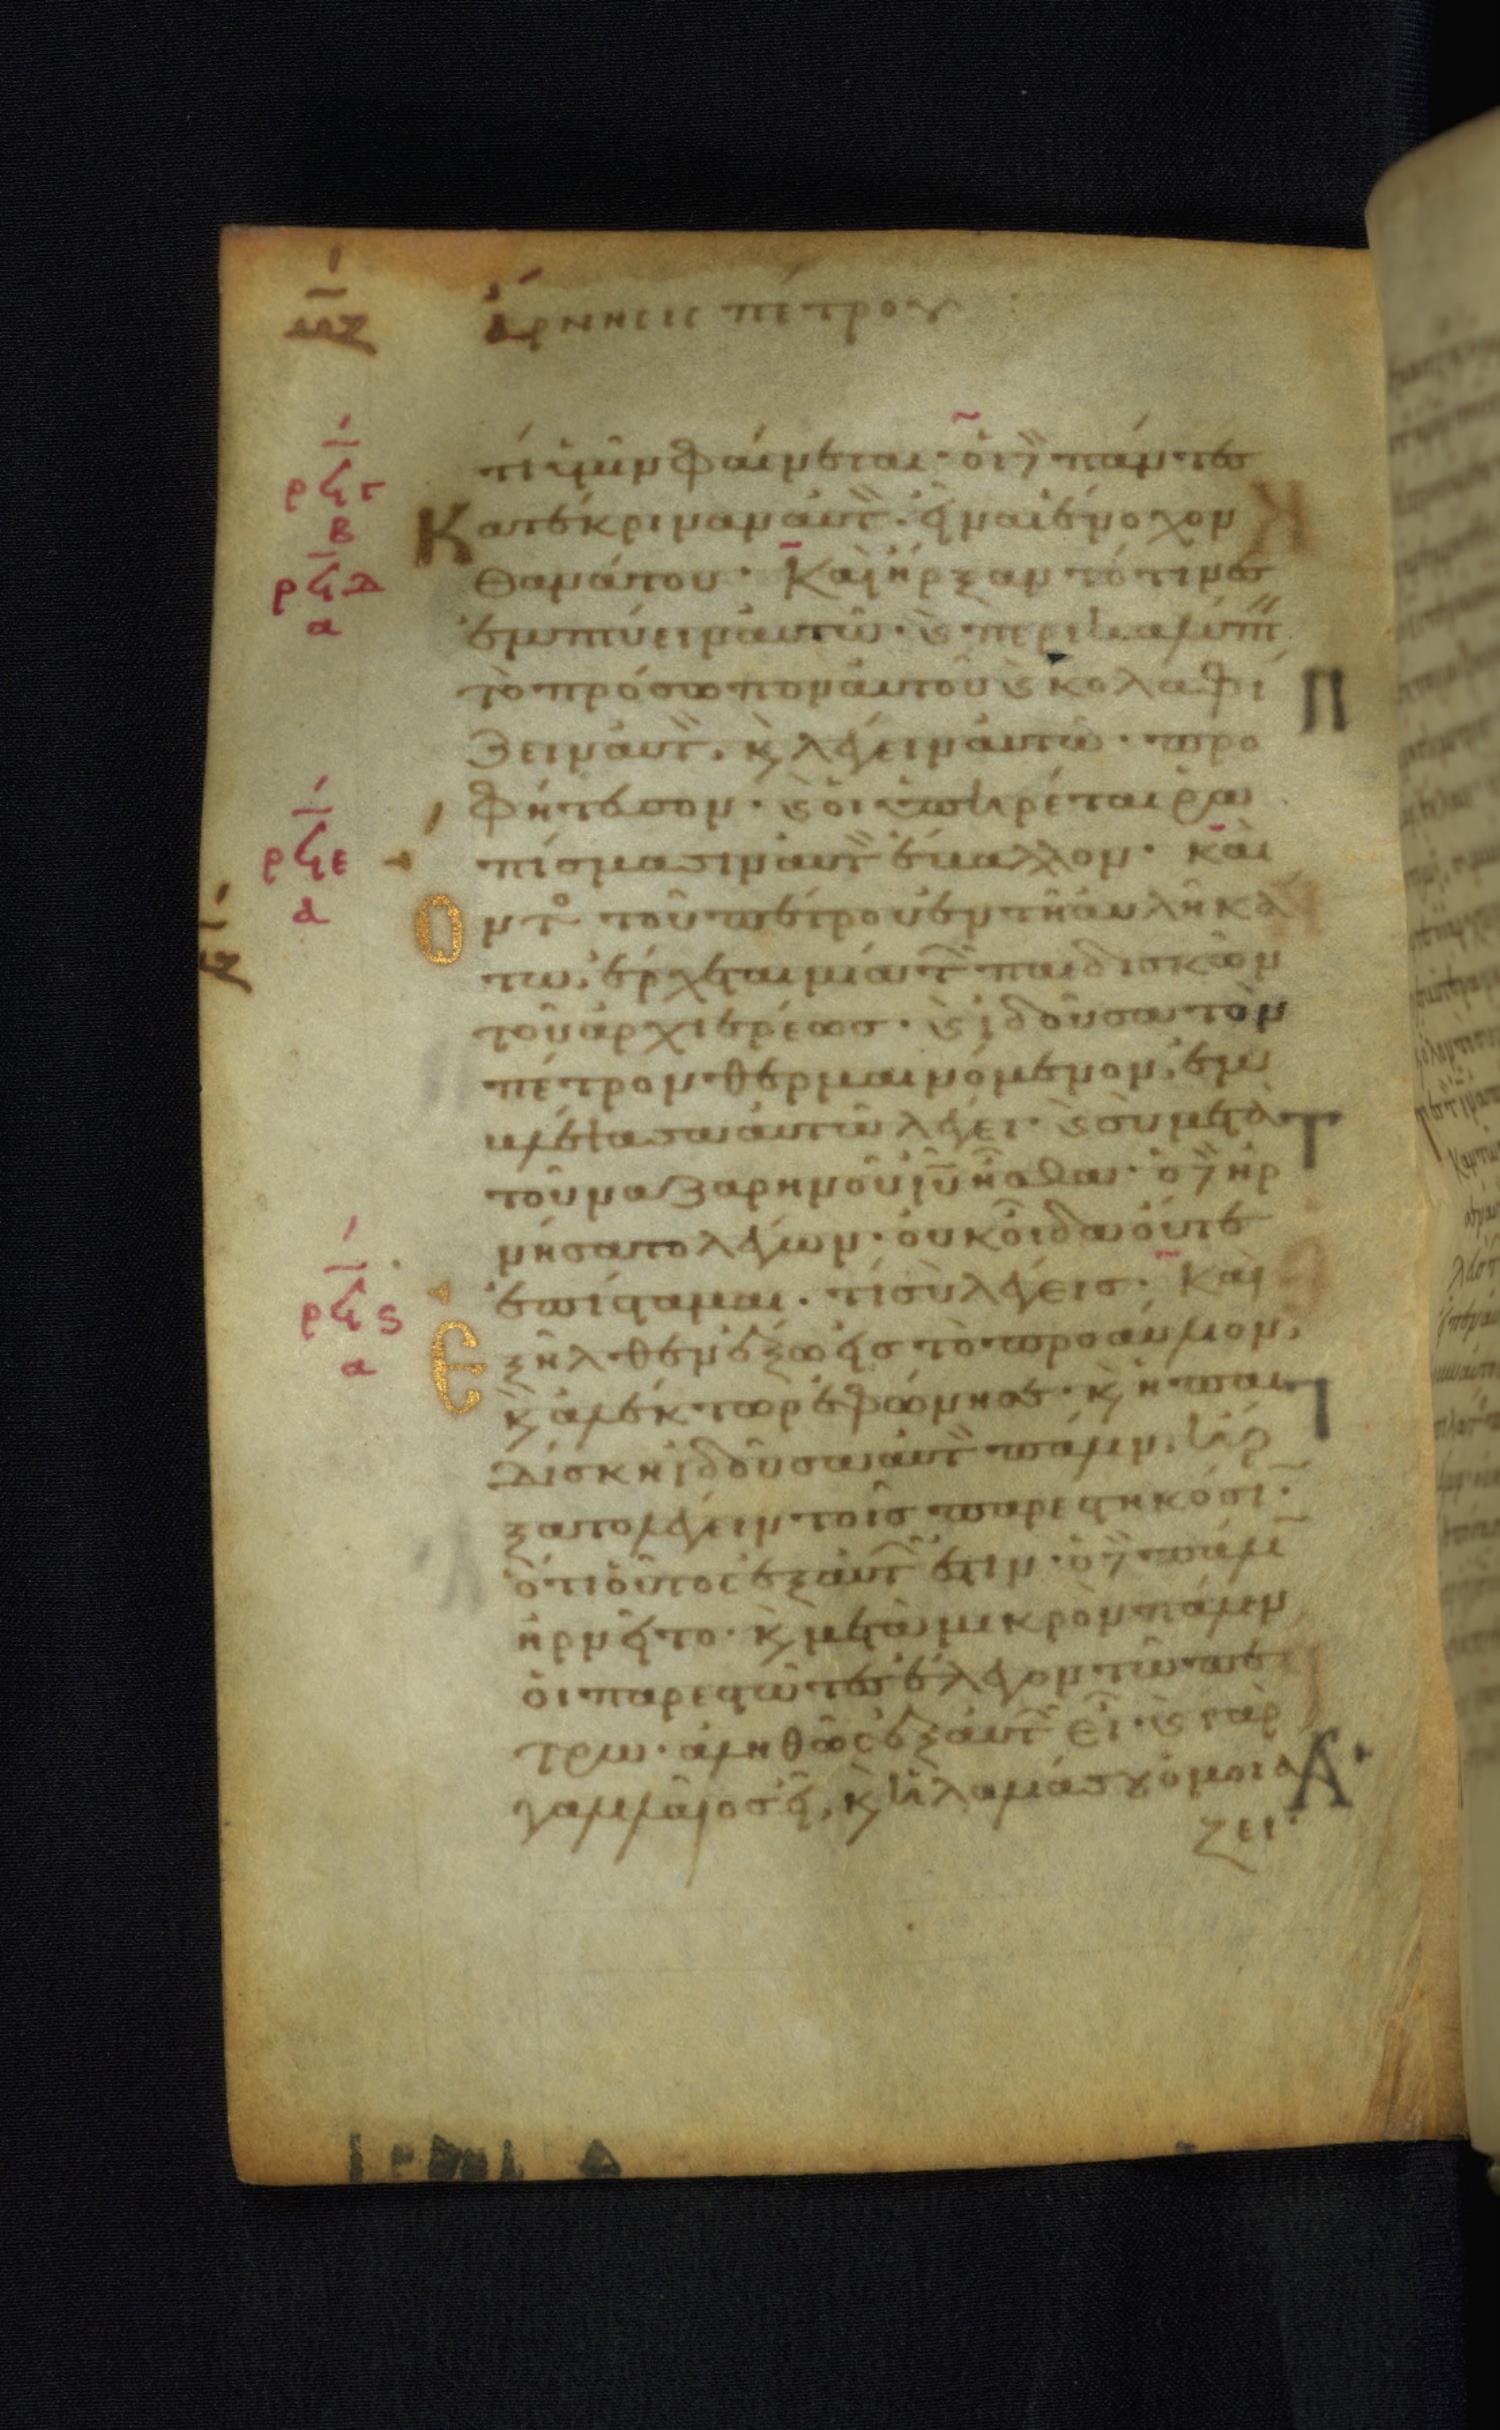 ἄρνησις πέτρου
τί ὑμῖν φαίνεται· οἱ δὲ πάντες
Κατέκριναν αὐτ· εἶναι ἔνοχον
θανάτου· Καὶ ἤρξαντό τινες
ἐμπτύειν αὐτῶ· κ περικαλύπτ
τὸ πρόσωπον αὐτοῦ κ κολαφί
ζειν αὐτ, κ λέγειν αὐτῶ· προ
φήτευσον· κ οἱ ὑπηρέται ρα
πίσμασιν αὐτ ἔβαλλον· καὶ
Ον τ τοῦ πέτρου ἐν τῆ αὐλῆ κά
τω, ἔρχεται μία τ παιδισκῶν
τοῦ ἀρχιερέως· κ ἰδοῦσα τὸν
πέτρον θερμαινόμενον, ἐμ
βλέψασα αὐτῶ λέγει· κ σὺ μετὰ
τοῦ ναζαρηνοῦ ἰῦ ἦσθα· ὁ δὲ ἠρ
νήσατο λέγων· οὐκ οἶδα οὔτε
ἐπίσταμαι· τί σὺ λέγεις· Καὶ
Εξῆλθεν ἔξω εἰς τὸ προαύλιον,
κ ἀλέκτωρ ἐφώνησε· κ ἡ παι
δίσκη ἰδοῦσα αὐτ πάλιν, ἤρ
ξατο λέγειν τοῖς παρεστηκόσι·
ὅτι οὗτος ἐξ αὐτ ἐστιν· ὁ δὲ πάλ
ἠρνεῖτο· κ μετὰ μικρὸν πάλιν
οἱ παρεστῶτες ἔλεγον τῶ πέ
τρω· ἀληθῶς ἐξ αὐτ εἶ· κ γὰρ
γαλιλαῖος εἶ, κ ἡ λαλιά σου ὁμοιά
ζει·
ρϟγ
β
ρϟδ
α
ρϟε
δ
ρϟς
α